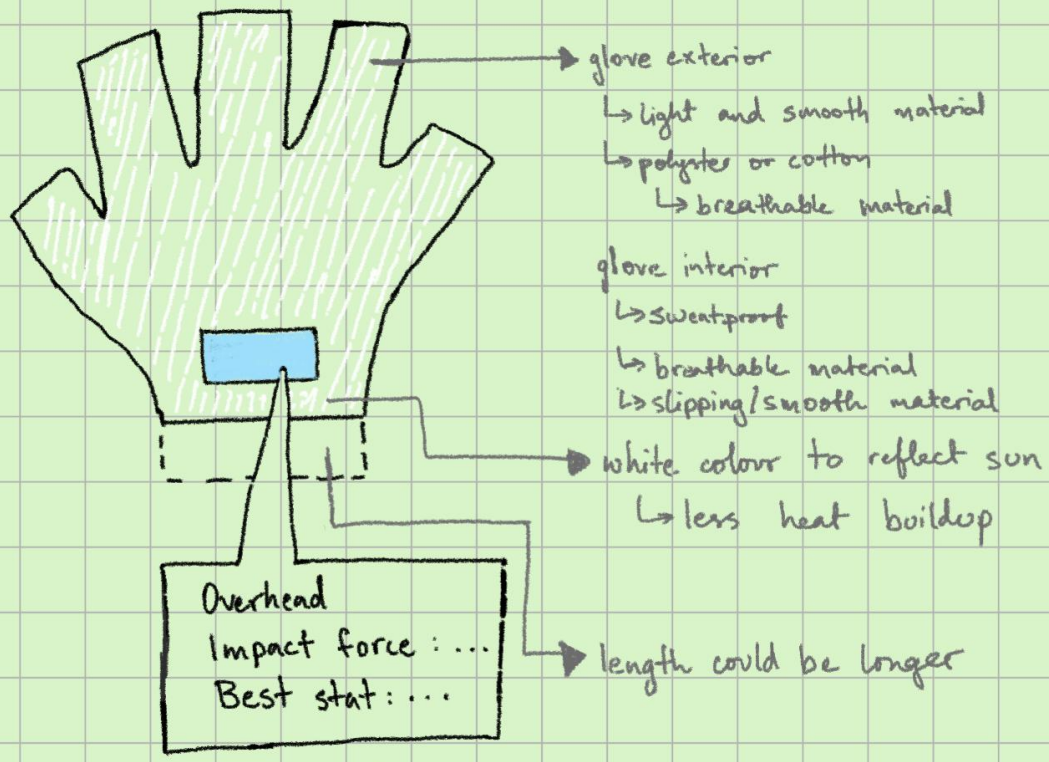 glove exterior
↳ light and smooth material
↳ polyster or cotton
↳ breathable material
glove interior
↳ sweatproof
↳ breathable material
↳ slipping/smooth material
white colour to reflect sun
↳ less heat buildup
length could be longer
Overhead
Impact force : ...
Best stat : ...